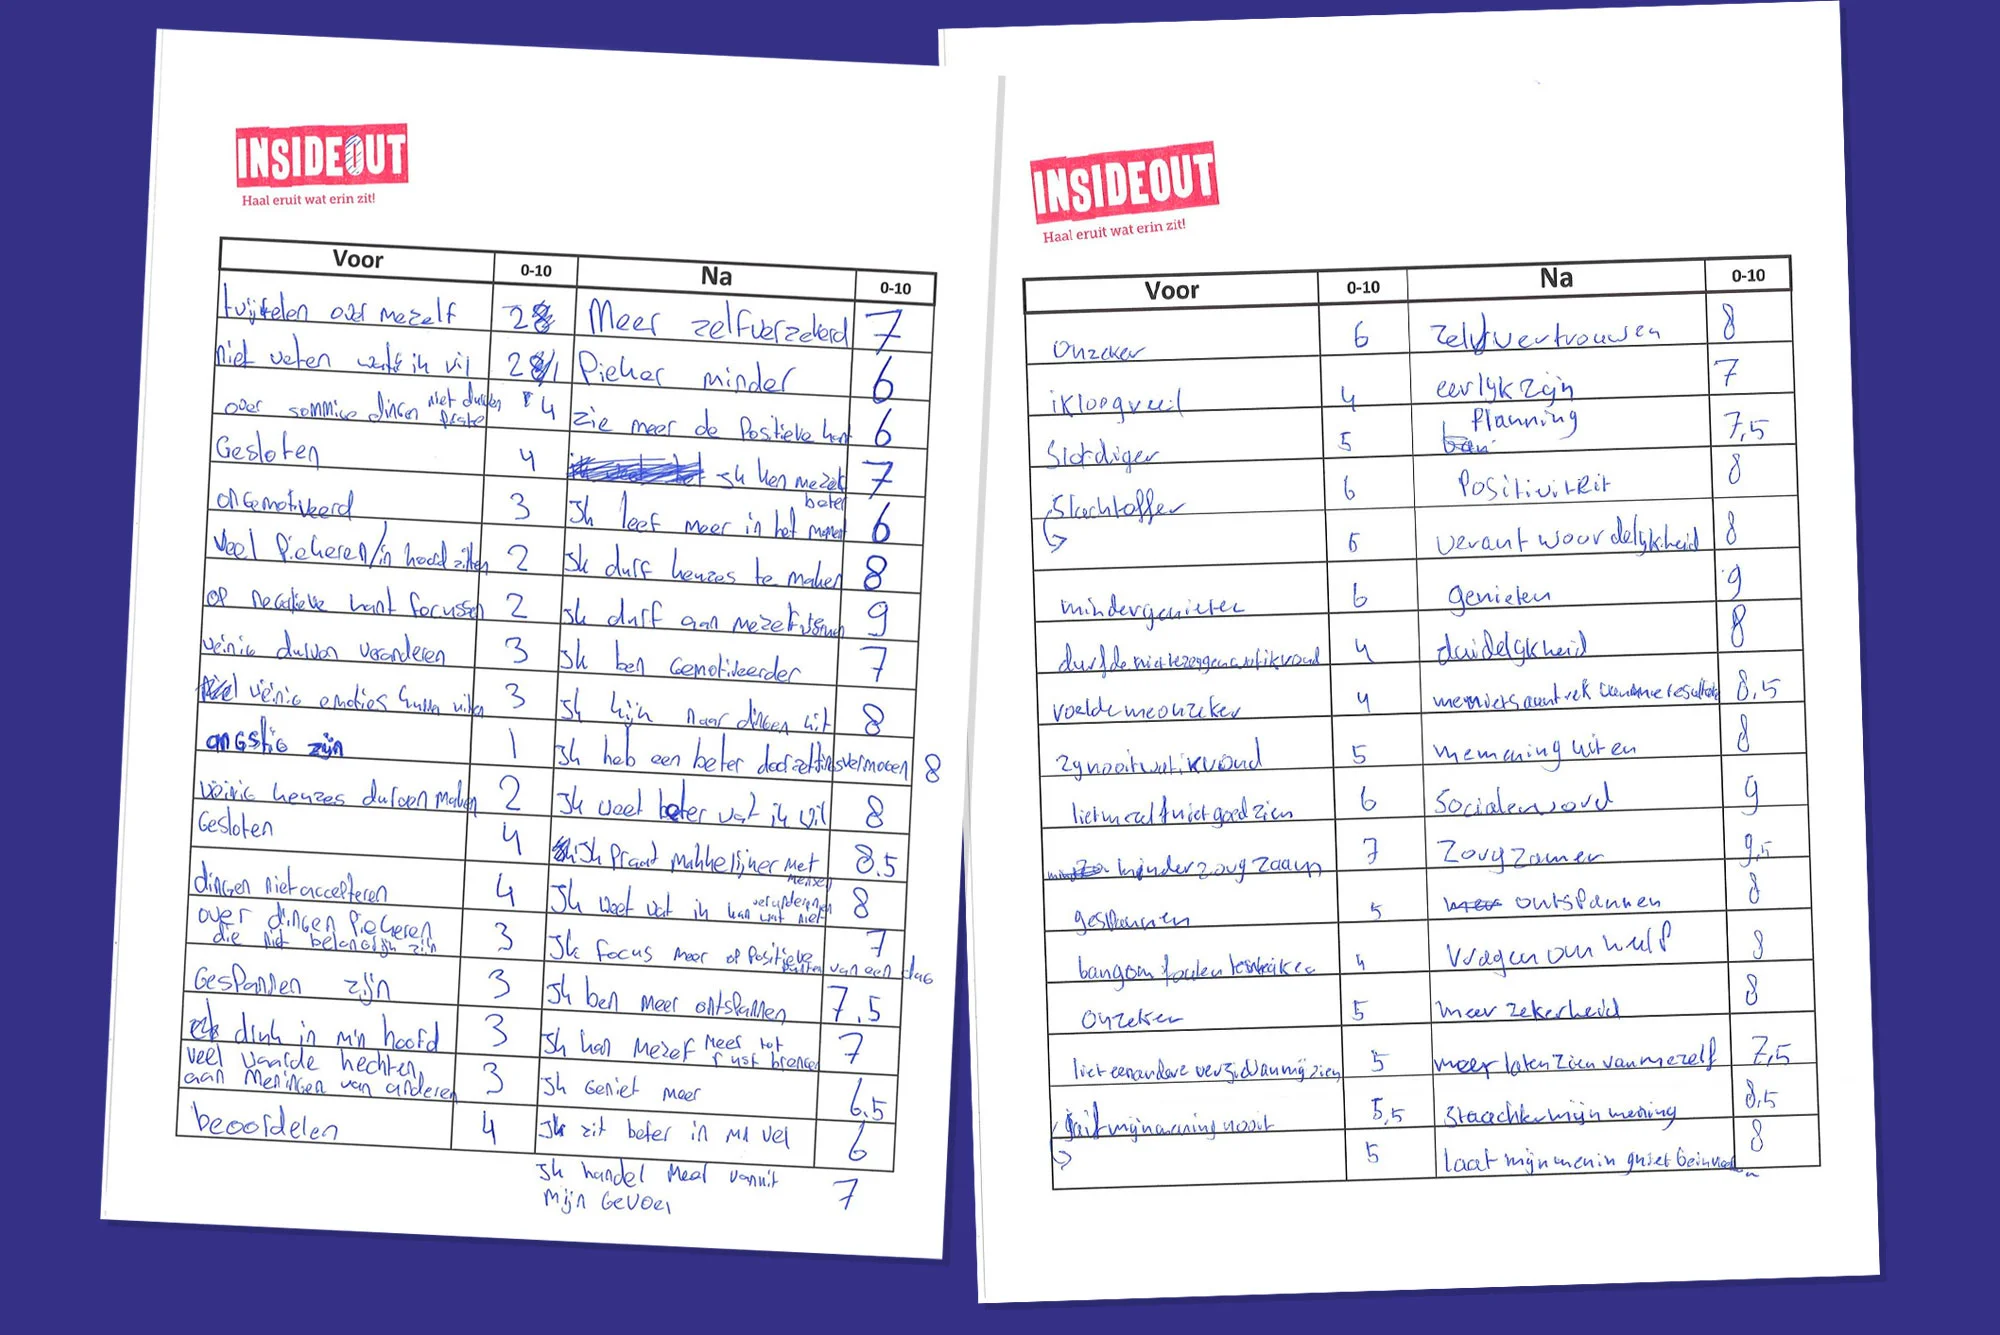 INSIDEOUT
Haal eruit wat erin zit!
Voor 0-10 Na 0-10
twijfelen over mezelf 2 Meer zelfverzekerd 7
niet weten wat ik wil 2 Pieker minder 6
over sommige dingen niet durven praten 4 zie meer de positieve kant 6
Gesloten 4 Ik ken mezelf beter 7
ongemotiveerd 3 Ik leef meer in het moment 6
veel piekeren/in hoofd zitten 2 Ik durf keuzes te maken 8
op negatieve kant focussen 2 Ik durf aan mezelf 9
weinig durven veranderen 3 Ik ben gemotiveerder 7
weinig emoties kunnen uiten 3 Ik kijk naar dingen uit 8
angstig zijn 1 Ik heb een beter doorzettingsvermogen 8
weinig keuzes durven maken 2 Ik weet beter wat ik wil 8
Gesloten 4 Ik praat makkelijker met mensen 8.5
dingen niet accepteren 4 Ik weet wat ik kan veranderen wat niet 8
over dingen piekeren
die niet belangrijk zijn 3 Ik focus meer op positieve punten van een dag 7
Gespannen zijn 3 Ik ben meer ontspannen 7.5
druk in m'n hoofd 3 Ik kan mezelf meer tot rust brengen 7
veel waarde hechten
aan meningen van anderen 3 Ik geniet meer 6.5
beoordelen 4 Ik zit beter in mn vel 6
Ik handel meer vanuit
mijn gevoel 7
INSIDEOUT
Haal eruit wat erin zit!
Voor 0-10 Na 0-10
Onzeker 6 Zelfvertrouwen 8
ik loog veel 4 eerlijk zijn 7
Slordiger 5 Planning 7,5
Slachtoffer 6 Positiviteit 8
5 verantwoordelijkheid 8
minder genieten 6 genieten 9
durfde niet te zeggen wat ik vond 4 duidelijkheid 8
voelde me onzeker 4 8,5
zij nooit wat ik vond 5 me mening uiten 8
liet mezelf niet goed zien 6 Socialer word 9
minder zorgzaam 7 Zorgzamer 9,5
gespannen 5 ontspannen 8
bang om fouten te maken 4 Vragen om hulp 8
Onzeker 5 meer zekerheid 8
liet een andere versie van mij zien 5 meer laten zien van mezelf 7,5
mijn mening nooit 5,5 Staachter mijn mening 8,5
5 laat mijn menin g niet beinvloeden 8